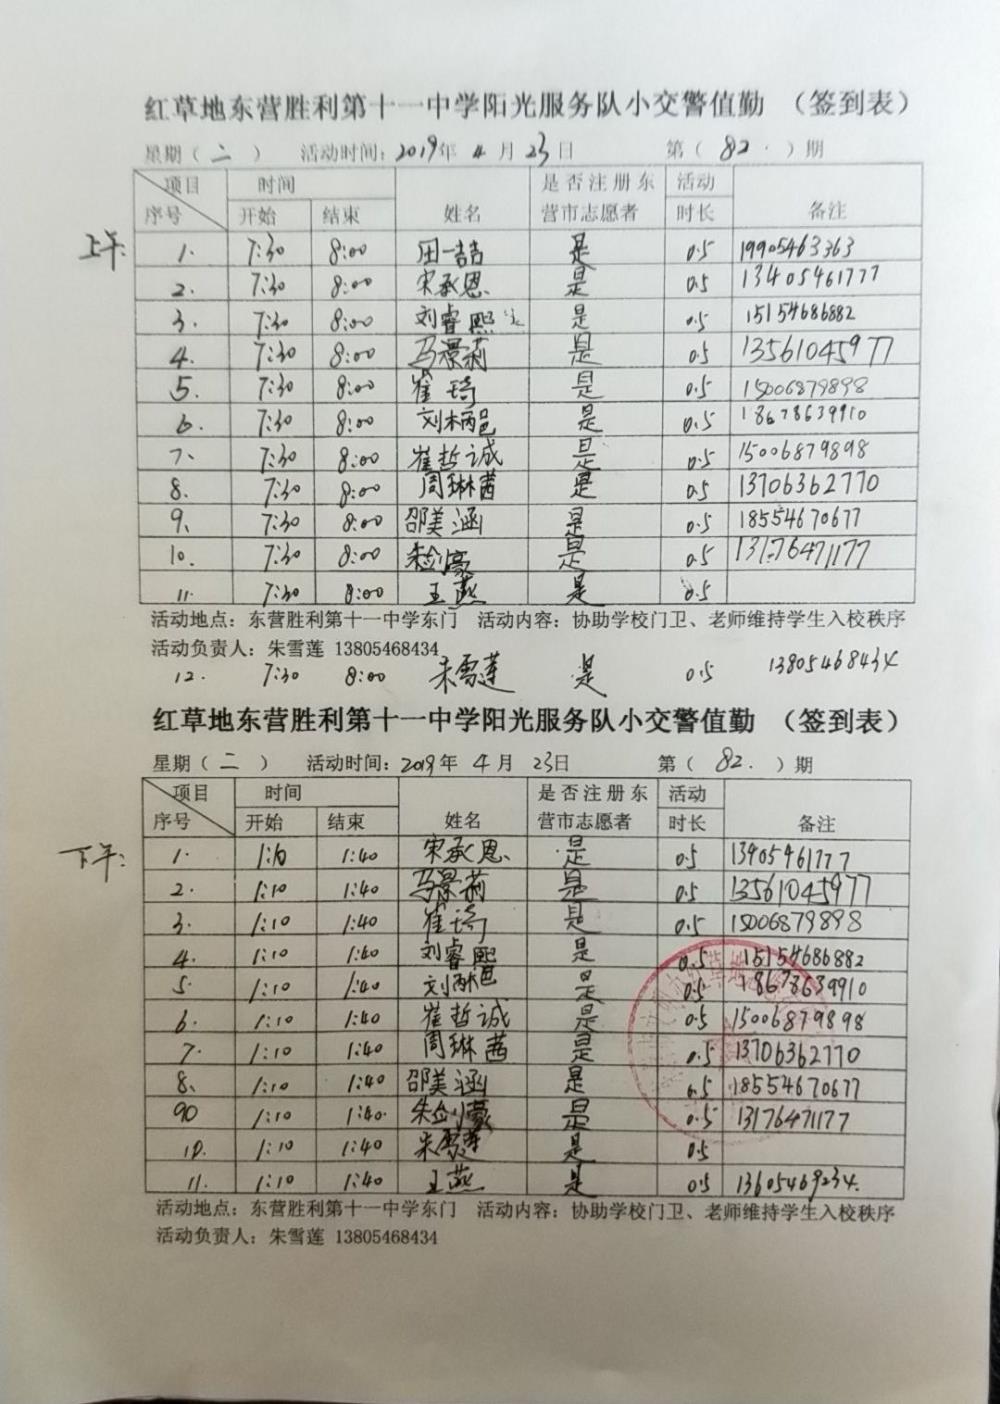 红草地东营胜利第十一中学阳光服务队小交警值勤 （签到表）
星期（二 ） 活动时间：2019年 4 月 23日 第（ 82. ）期
项目 时间 是否注册东 活动
序号 开始 结束 姓名 营市志愿者 时长 备注
上午：
1. 7:30 8:00 田一喆 是 0.5 19905463363
2. 7:30 8:00 宋承恩 是 0.5 13405461777
3. 7:30 8:00 刘睿熙 是 0.5 15154686882
4. 7:30 8:00 马景莉 是 0.5 13561045977
5. 7:30 8:00 崔琦 是 0.5 15006879898
6. 7:30 8:00 是 0.5 18678639910
7. 7:30 8:00 崔哲诚 是 0.5 15006879898
8. 7:30 8:00 周琳茜 是 0.5 13706362770
9. 7:30 8:00 邵美涵 是 0.5 18554670677
10. 7:30 8:00 朱剑豪 是 0.5 13176471177
11. 7:30 8:00 王燕 是 0.5
活动地点：东营胜利第十一中学东门 活动内容：协助学校门卫、老师维持学生入校秩序
活动负责人：朱雪莲 13805468434
12. 7:30 8:00 朱雪莲 是 0.5 13805468434
红草地东营胜利第十一中学阳光服务队小交警值勤 （签到表）
星期（二 ） 活动时间：2019年 4 月 23日 第（ 82. ）期
项目 时间 是否注册东 活动
序号 开始 结束 姓名 营市志愿者 时长 备注
下午：
1. 1:10 1:40 宋承恩 是 0.5 13405461777
2. 1:10 1:40 马景莉 是 0.5 13561045977
3. 1:10 1:40 崔琦 是 0.5 15006879898
4. 1:10 1:40 刘睿熙 是 0.5 15154686882
5. 1:10 1:40 是 0.5 18678639910
6. 1:10 1:40 崔哲诚 是 0.5 15006879898
7. 1:10 1:40 周琳茜 是 0.5 13706362770
8. 1:10 1:40 邵美涵 是 0.5 18554670677
90 1:10 1:40 朱剑豪 是 0.5 13176471177
10. 1:10 1:40 朱雪莲 是 0.5
11. 1:10 1:40 王燕 是 0.5 13605469234.
活动地点：东营胜利第十一中学东门 活动内容：协助学校门卫、老师维持学生入校秩序
活动负责人：朱雪莲 13805468434